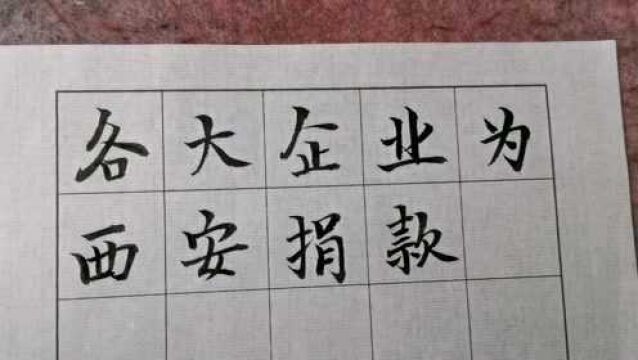 各大企业为
西安捐款